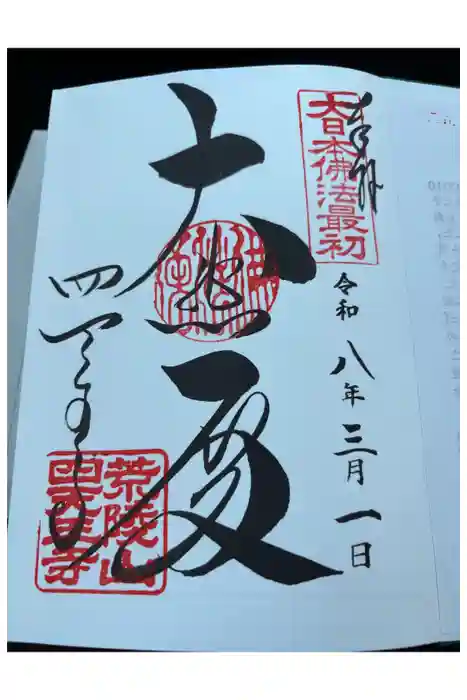 奉拝
大日本佛法最初
令和八年三月一日
大悲殿
四天王寺
荒陵山
四天王寺